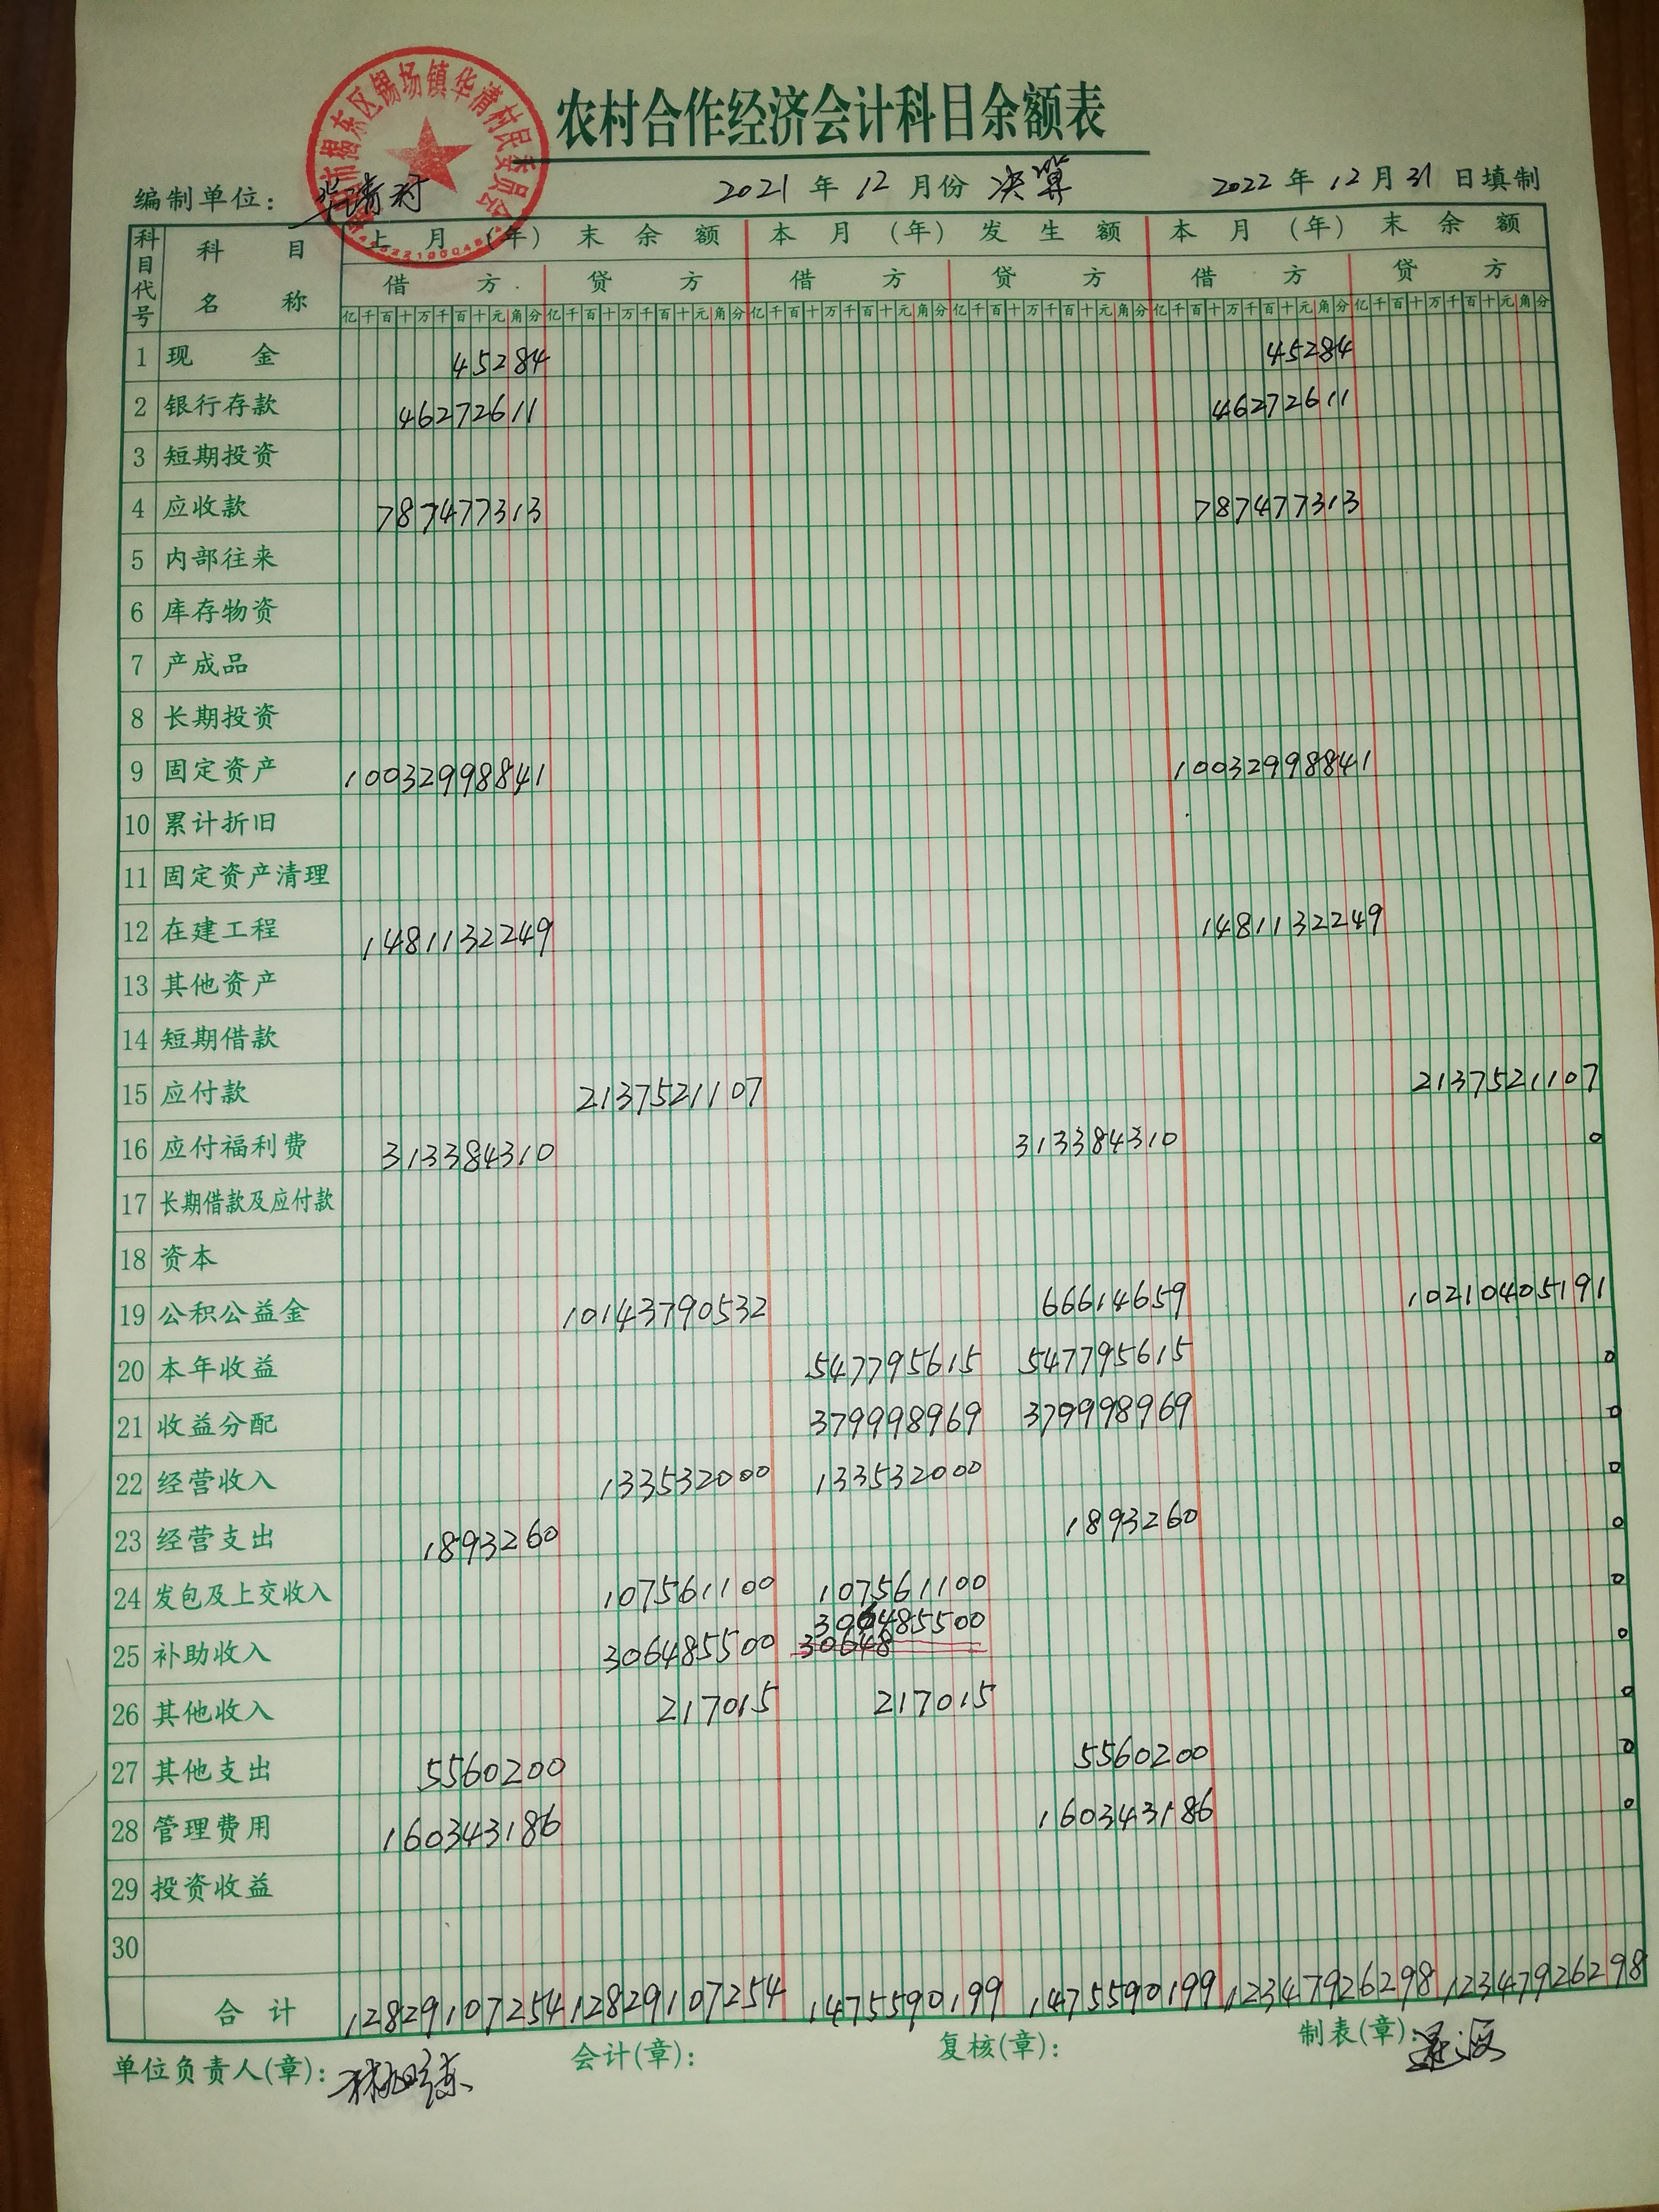 农村合作经济会计科目余额表
市揭东区锡场镇华清村民委员会
编制单位： 华清村 2021 年 12 月份 决算 2022 年 12 月 31 日填制
科目代号 科目名称 上月（年）末余额 本月（年）发生额 本月（年）末余额
借方 贷方 借方 贷方 借方 贷方
亿千百十万千百十元角分 亿千百十万千百十元角分 亿千百十万千百十元角分 亿千百十万千百十元角分 亿千百十万千百十元角分 亿千百十万千百十元角分
1 现金 45284 45284
2 银行存款 46272611 46272611
3 短期投资
4 应收款 787477313 787477313
5 内部往来
6 库存物资
7 产成品
8 长期投资
9 固定资产 10032998841 10032998841
10 累计折旧
11 固定资产清理
12 在建工程 1481132249 1481132249
13 其他资产
14 短期借款
15 应付款 2137521107 2137521107
16 应付福利费 313384310 313384310 0
17 长期借款及应付款
18 资本
19 公积公益金 10143790532 66614659 10210405191
20 本年收益 547795615 547795615 0
21 收益分配 379998969 379998969 0
22 经营收入 133532000 133532000 0
23 经营支出 1893260 1893260 0
24 发包及上交收入 107561100 107561100 0
306485500
25 补助收入 306485500 30648 0
26 其他收入 217015 217015 0
27 其他支出 5560200 5560200 0
28 管理费用 160343186 160343186 0
29 投资收益
30
合计 12829107254 12829107254 1475590199 1475590199 12347926298 12347926298
单位负责人(章)： 会计(章)： 复核(章)： 制表(章)：